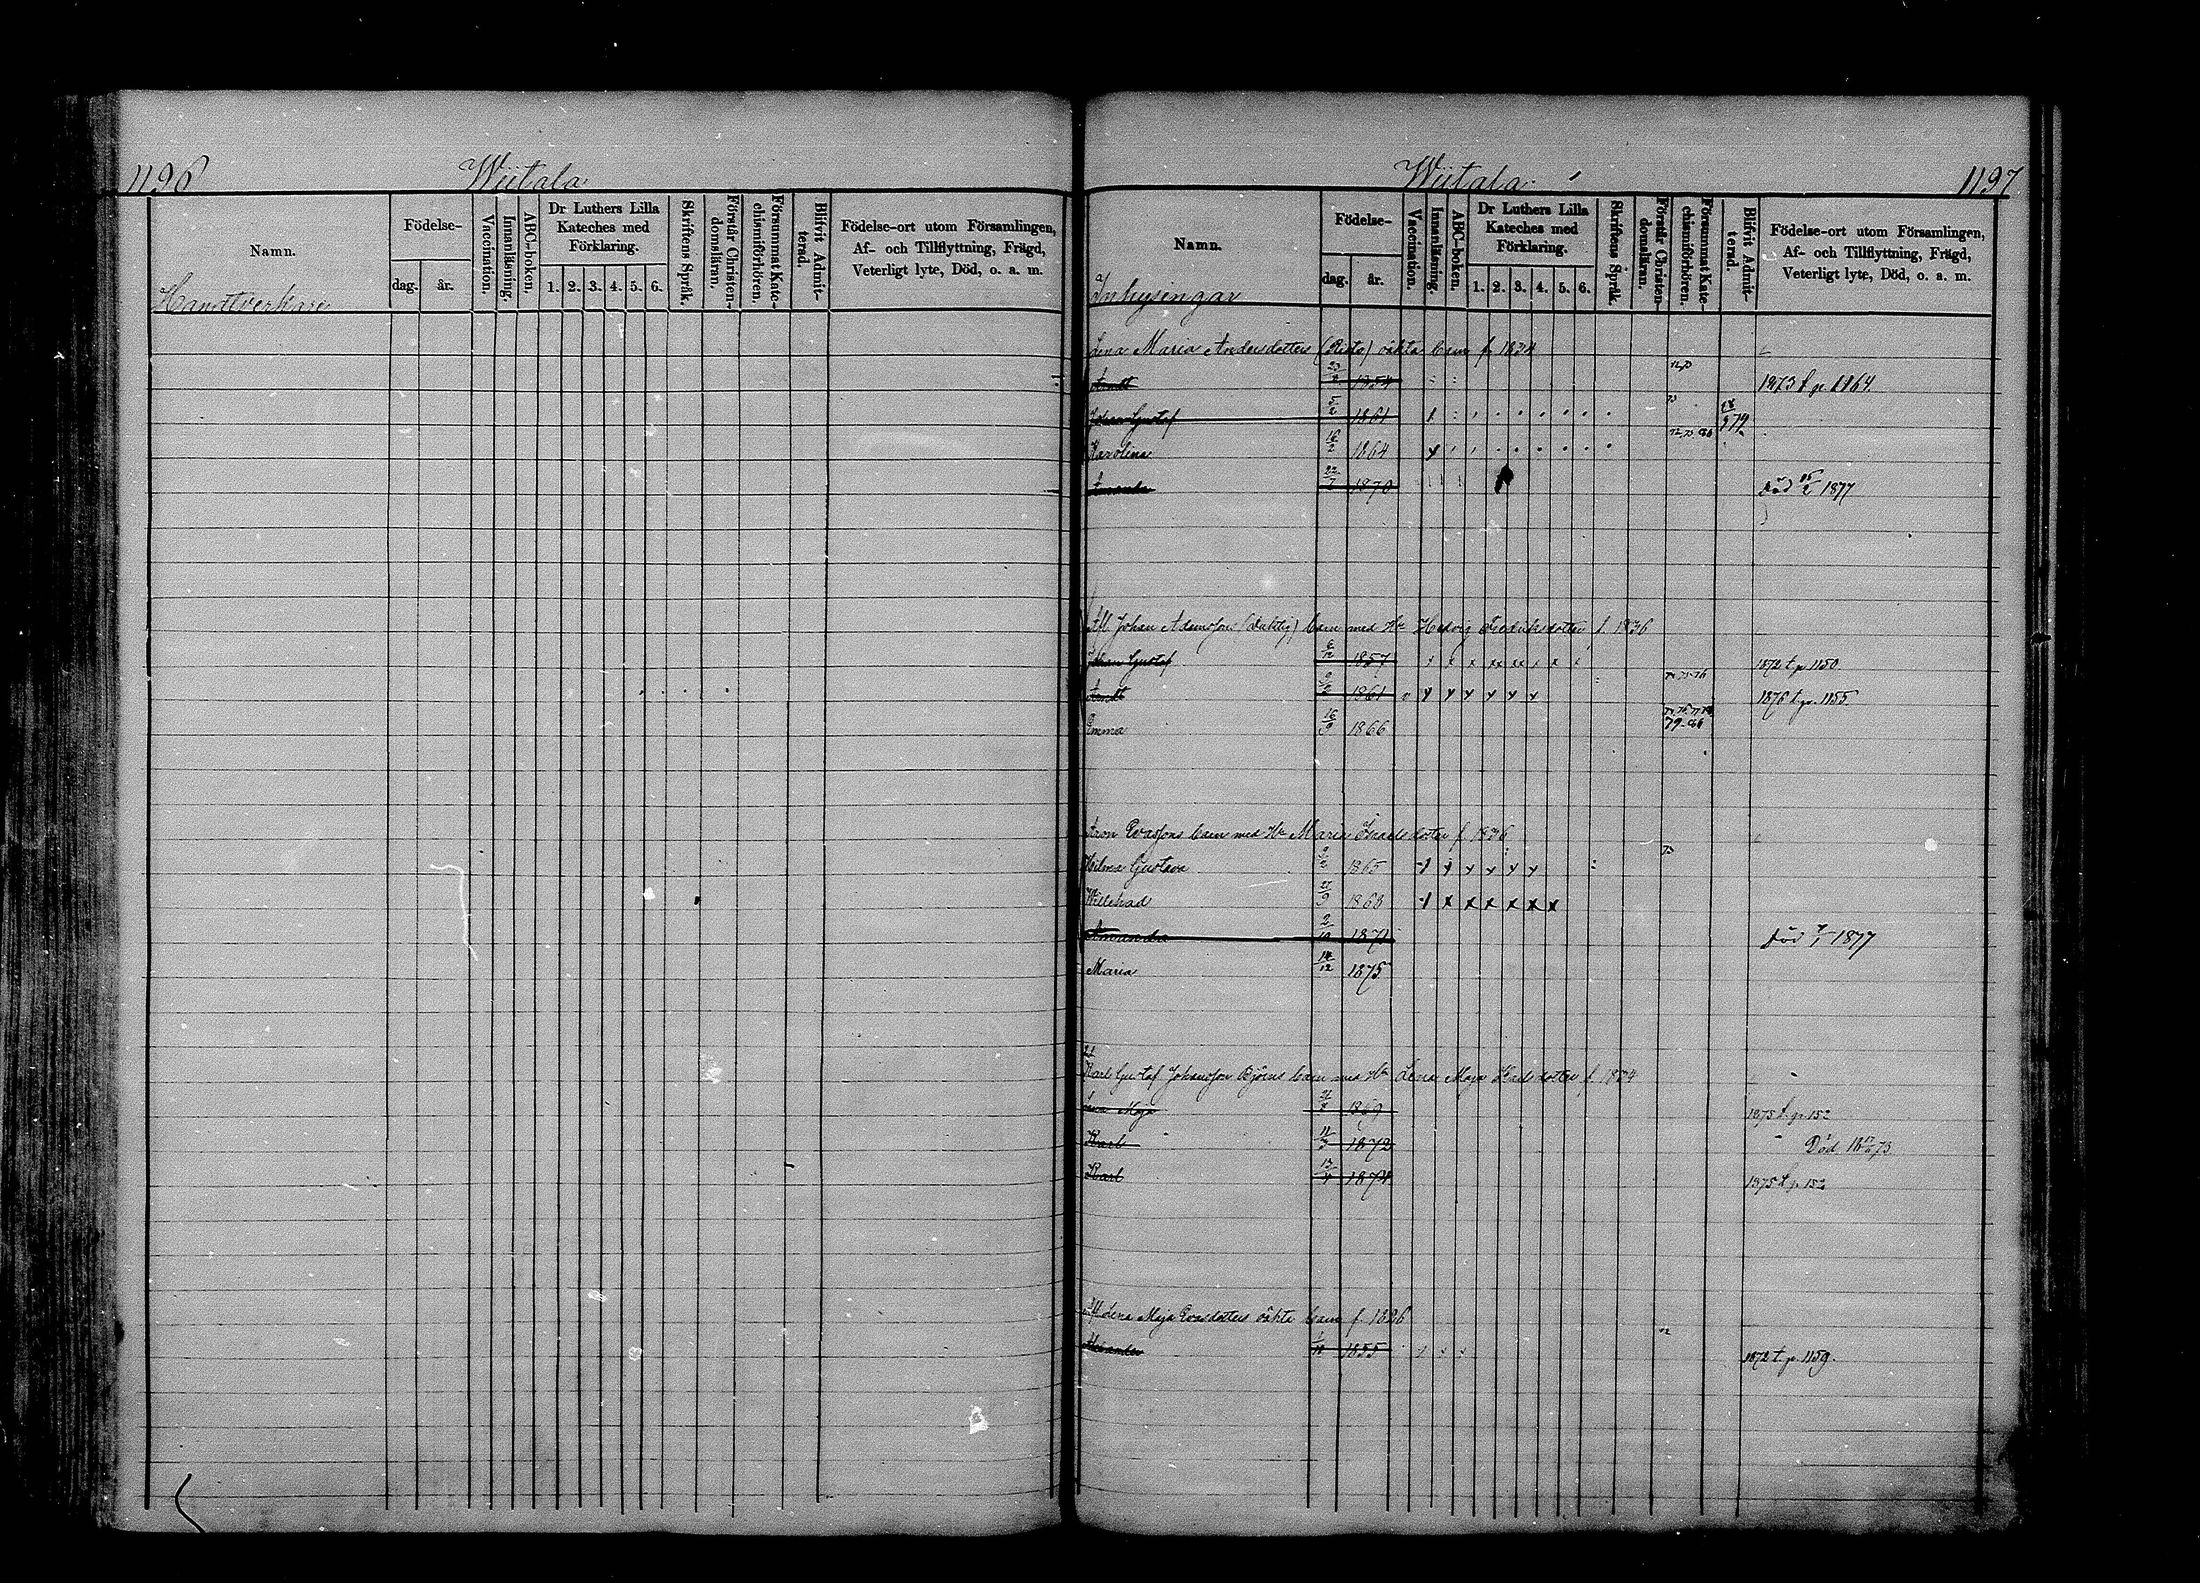 1196 Wiitala
Namn.
Födelse-
dag.
år.
Vaccination.
Innanläsning.
ABC-boken.
Dr Luthers Lilla Kateches med Förklaring.
1. 2. 3. 4. 5. 6.
Skriftens Språk.
Förstår Christendomsläran.
Försummat Katechismiförhören.
Blifvit Admitterad.
Födelse-ort utom Församlingen,
Af- och Tillflyttning, Frägd,
Veterligt lyte, Död, o. a. m.
Handtverkare
Wiitala 1197
Namn.
Födelse-
dag.
år.
Vaccination.
Innanläsning.
ABC-boken.
Dr Luthers Lilla Kateches med Förklaring.
1. 2. 3. 4. 5. 6.
Skriftens Språk.
Förstår Christendomsläran.
Försummat Katechismiförhören.
Blifvit Admitterad.
Födelse-ort utom Församlingen,
Af- och Tillflyttning, Frägd,
Veterligt lyte, Död, o. a. m.
Inhysingar
Lena Maria Andersdotters (Risto) oäkta barn f. 1834
1854 1873 t. p. 1164
Johan Gustaf 5/2 1861
Karolina 16/2 1864
Amanda 1870 död 1877
Johan Adamssons barn med Hu Hedvig Fredriksdotter f. 1836
Johan Gustaf 1857 1872 t. p. 1150
1861 1876 t. p. 1155
Emma 16/9 1866 79-80
Aron Evassons barn med Hu Maria Isaksdotter f. 1836
Hilma Gustava 1865
Willehad 1868
Amanda 2/10 1871 död 1877
Maria 12 1875
Karl Gustaf Johansson Björns barn med Hu Lena Maja Karlsdotter f. 1834
Lena Maja 1869 1875 t. p. 152
Karl 1872 Död 18 73
Karl 1874 1875 t. p. 152
Lena Maja Evasdotters oäkta barn f. 1826
Alexander 1855 1872 t. p. 1159.